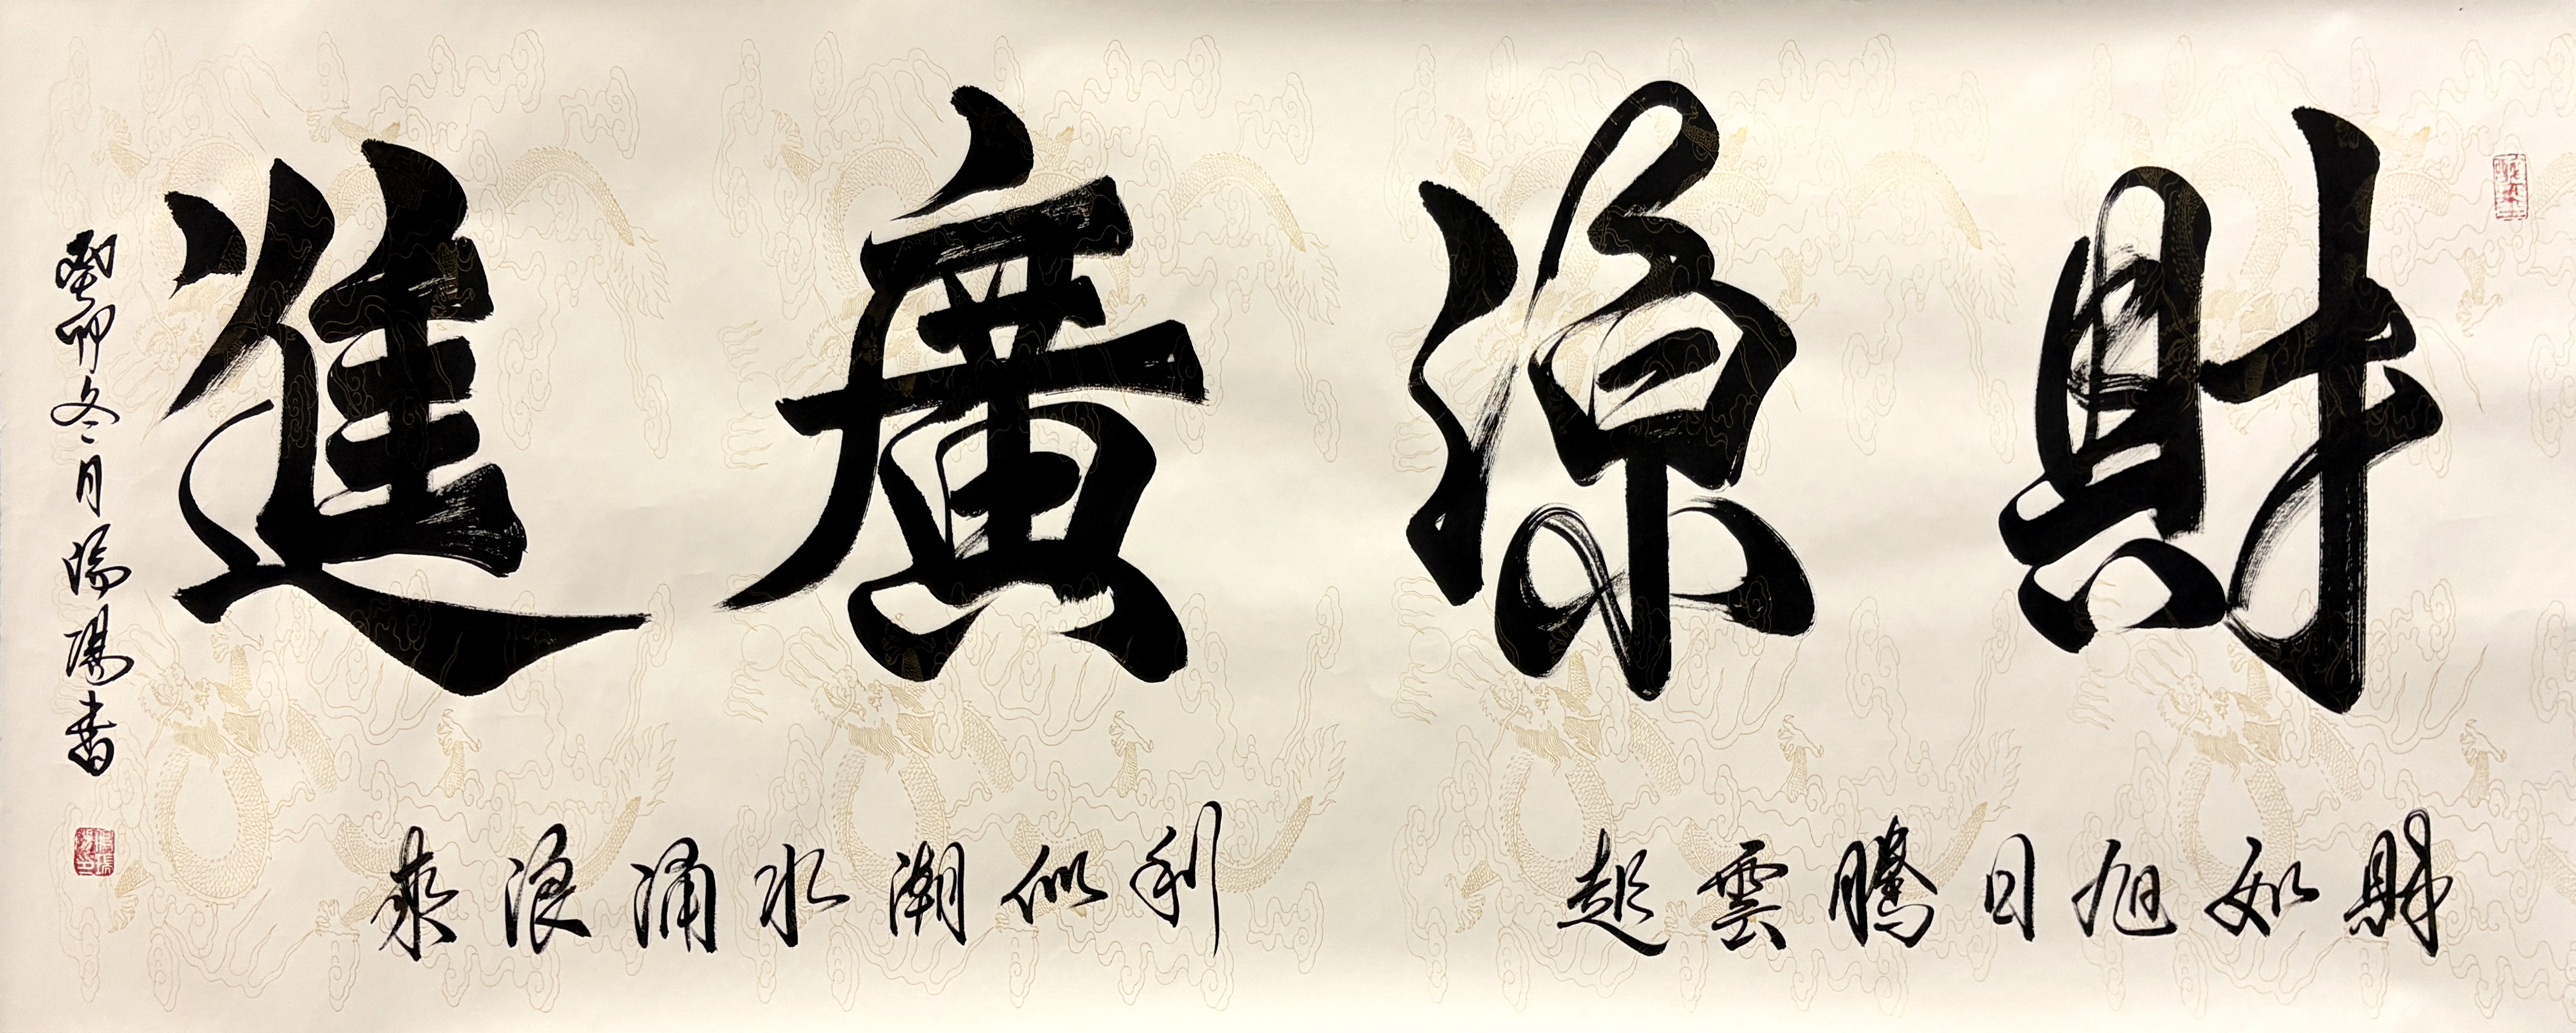 財源廣進
財如旭日騰雲起
利似潮水涌浪來
癸卯冬月
書